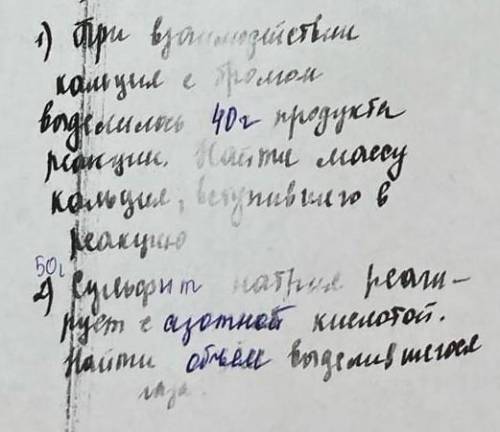 1) При взаимодействии
кальция с бромом
выделилось 40г продукта
реакции. Найти массу
кальция, вступившего в
реакцию
50г
2) Сульфит натрия реаги-
рует с азотной кислотой.
Найти объём выделившегося
газа.